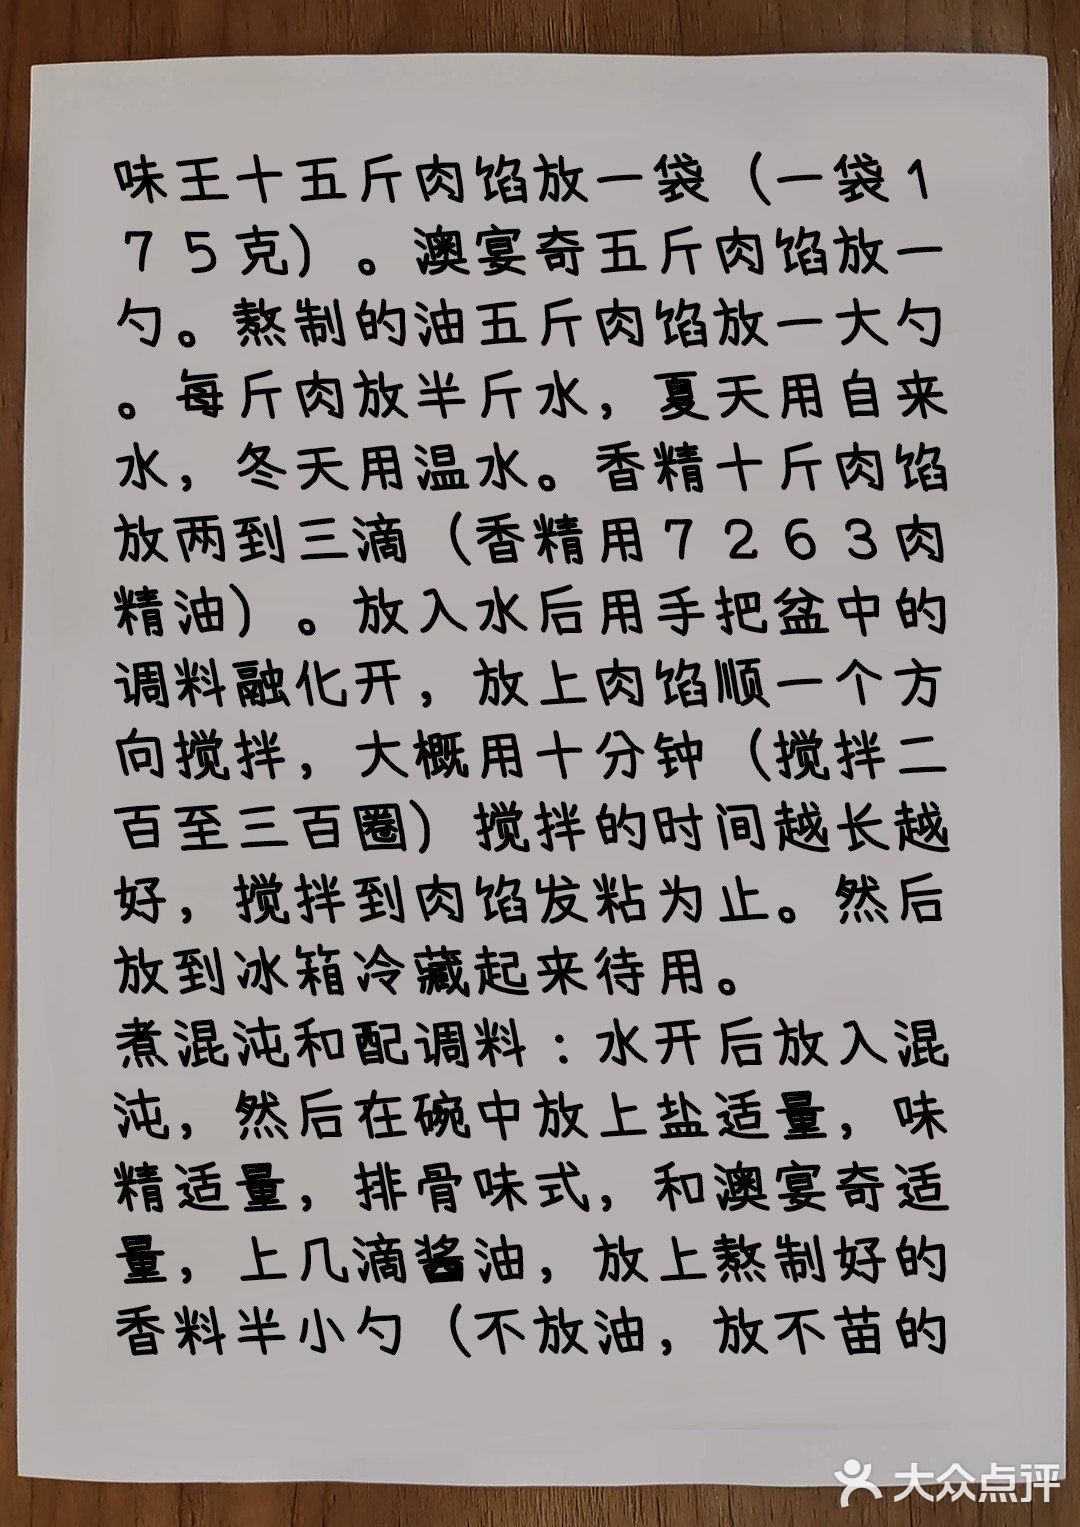 味王十五斤肉馅放一袋（一袋1
75克）。澳宴奇五斤肉馅放一
勺。熬制的油五斤肉馅放一大勺
。每斤肉放半斤水，夏天用自来
水，冬天用温水。香精十斤肉馅
放两到三滴（香精用7263肉
精油）。放入水后用手把盆中的
调料融化开，放上肉馅顺一个方
向搅拌，大概用十分钟（搅拌二
百至三百圈）搅拌的时间越长越
好，搅拌到肉馅发粘为止。然后
放到冰箱冷藏起来待用。
煮混沌和配调料：水开后放入混
沌，然后在碗中放上盐适量，味
精适量，排骨味式，和澳宴奇适
量，上几滴酱油，放上熬制好的
香料半小勺（不放油，放不苗的
大众点评